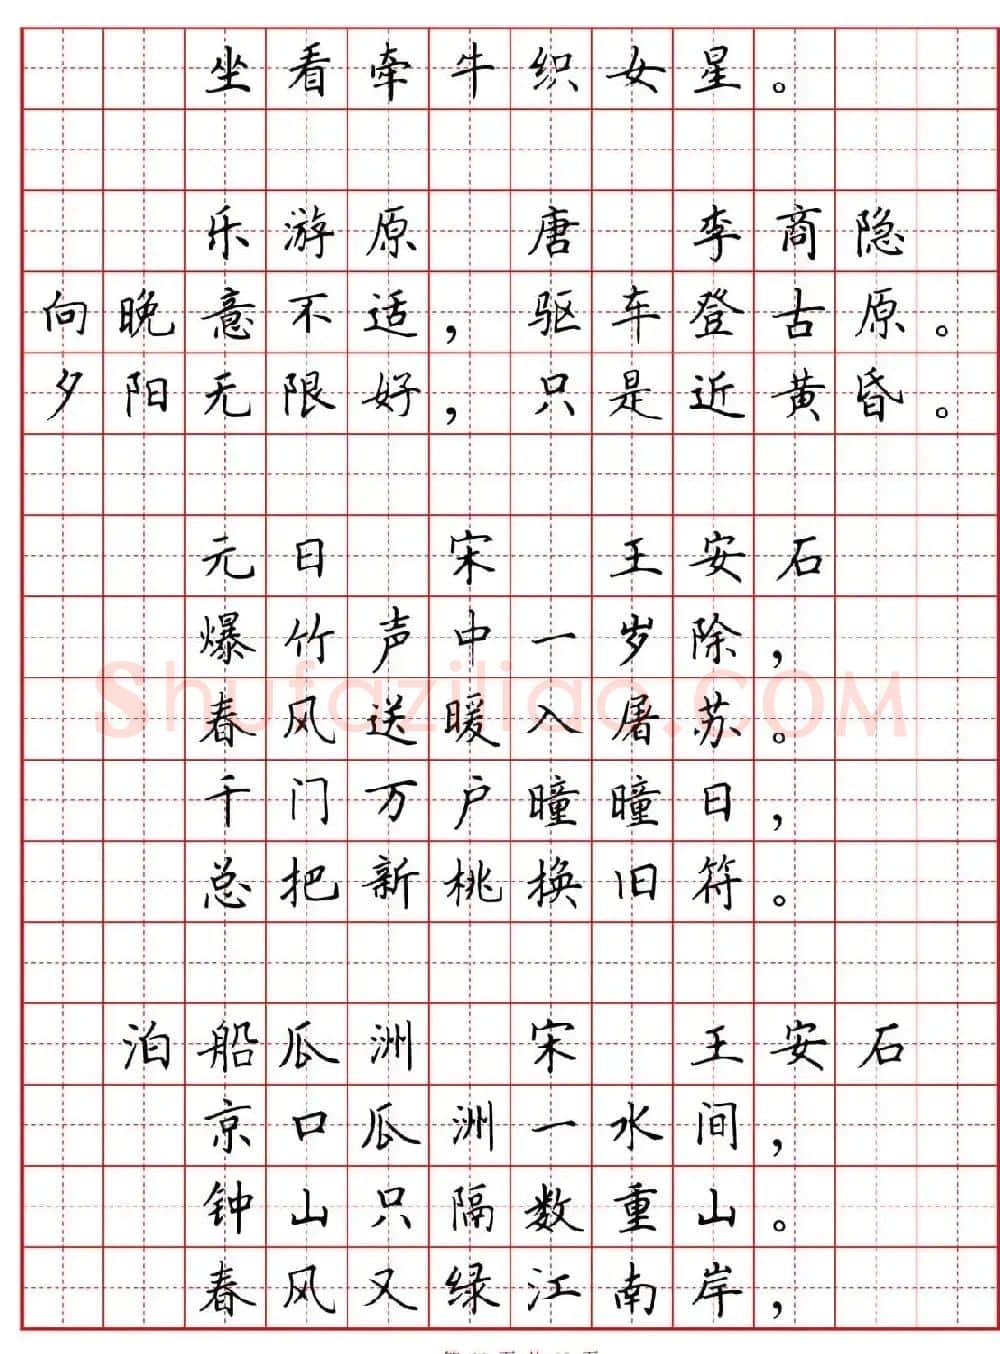 坐看牵牛织女星。
乐游原 唐 李商隐
向晚意不适，驱车登古原。
夕阳无限好，只是近黄昏。
元日 宋 王安石
爆竹声中一岁除，
Shufaziliao.COM
春风送暖入屠苏。
千门万户曈曈日，
总把新桃换旧符。
泊船瓜洲 宋 王安石
京口瓜洲一水间，
钟山只隔数重山。
春风又绿江南岸，